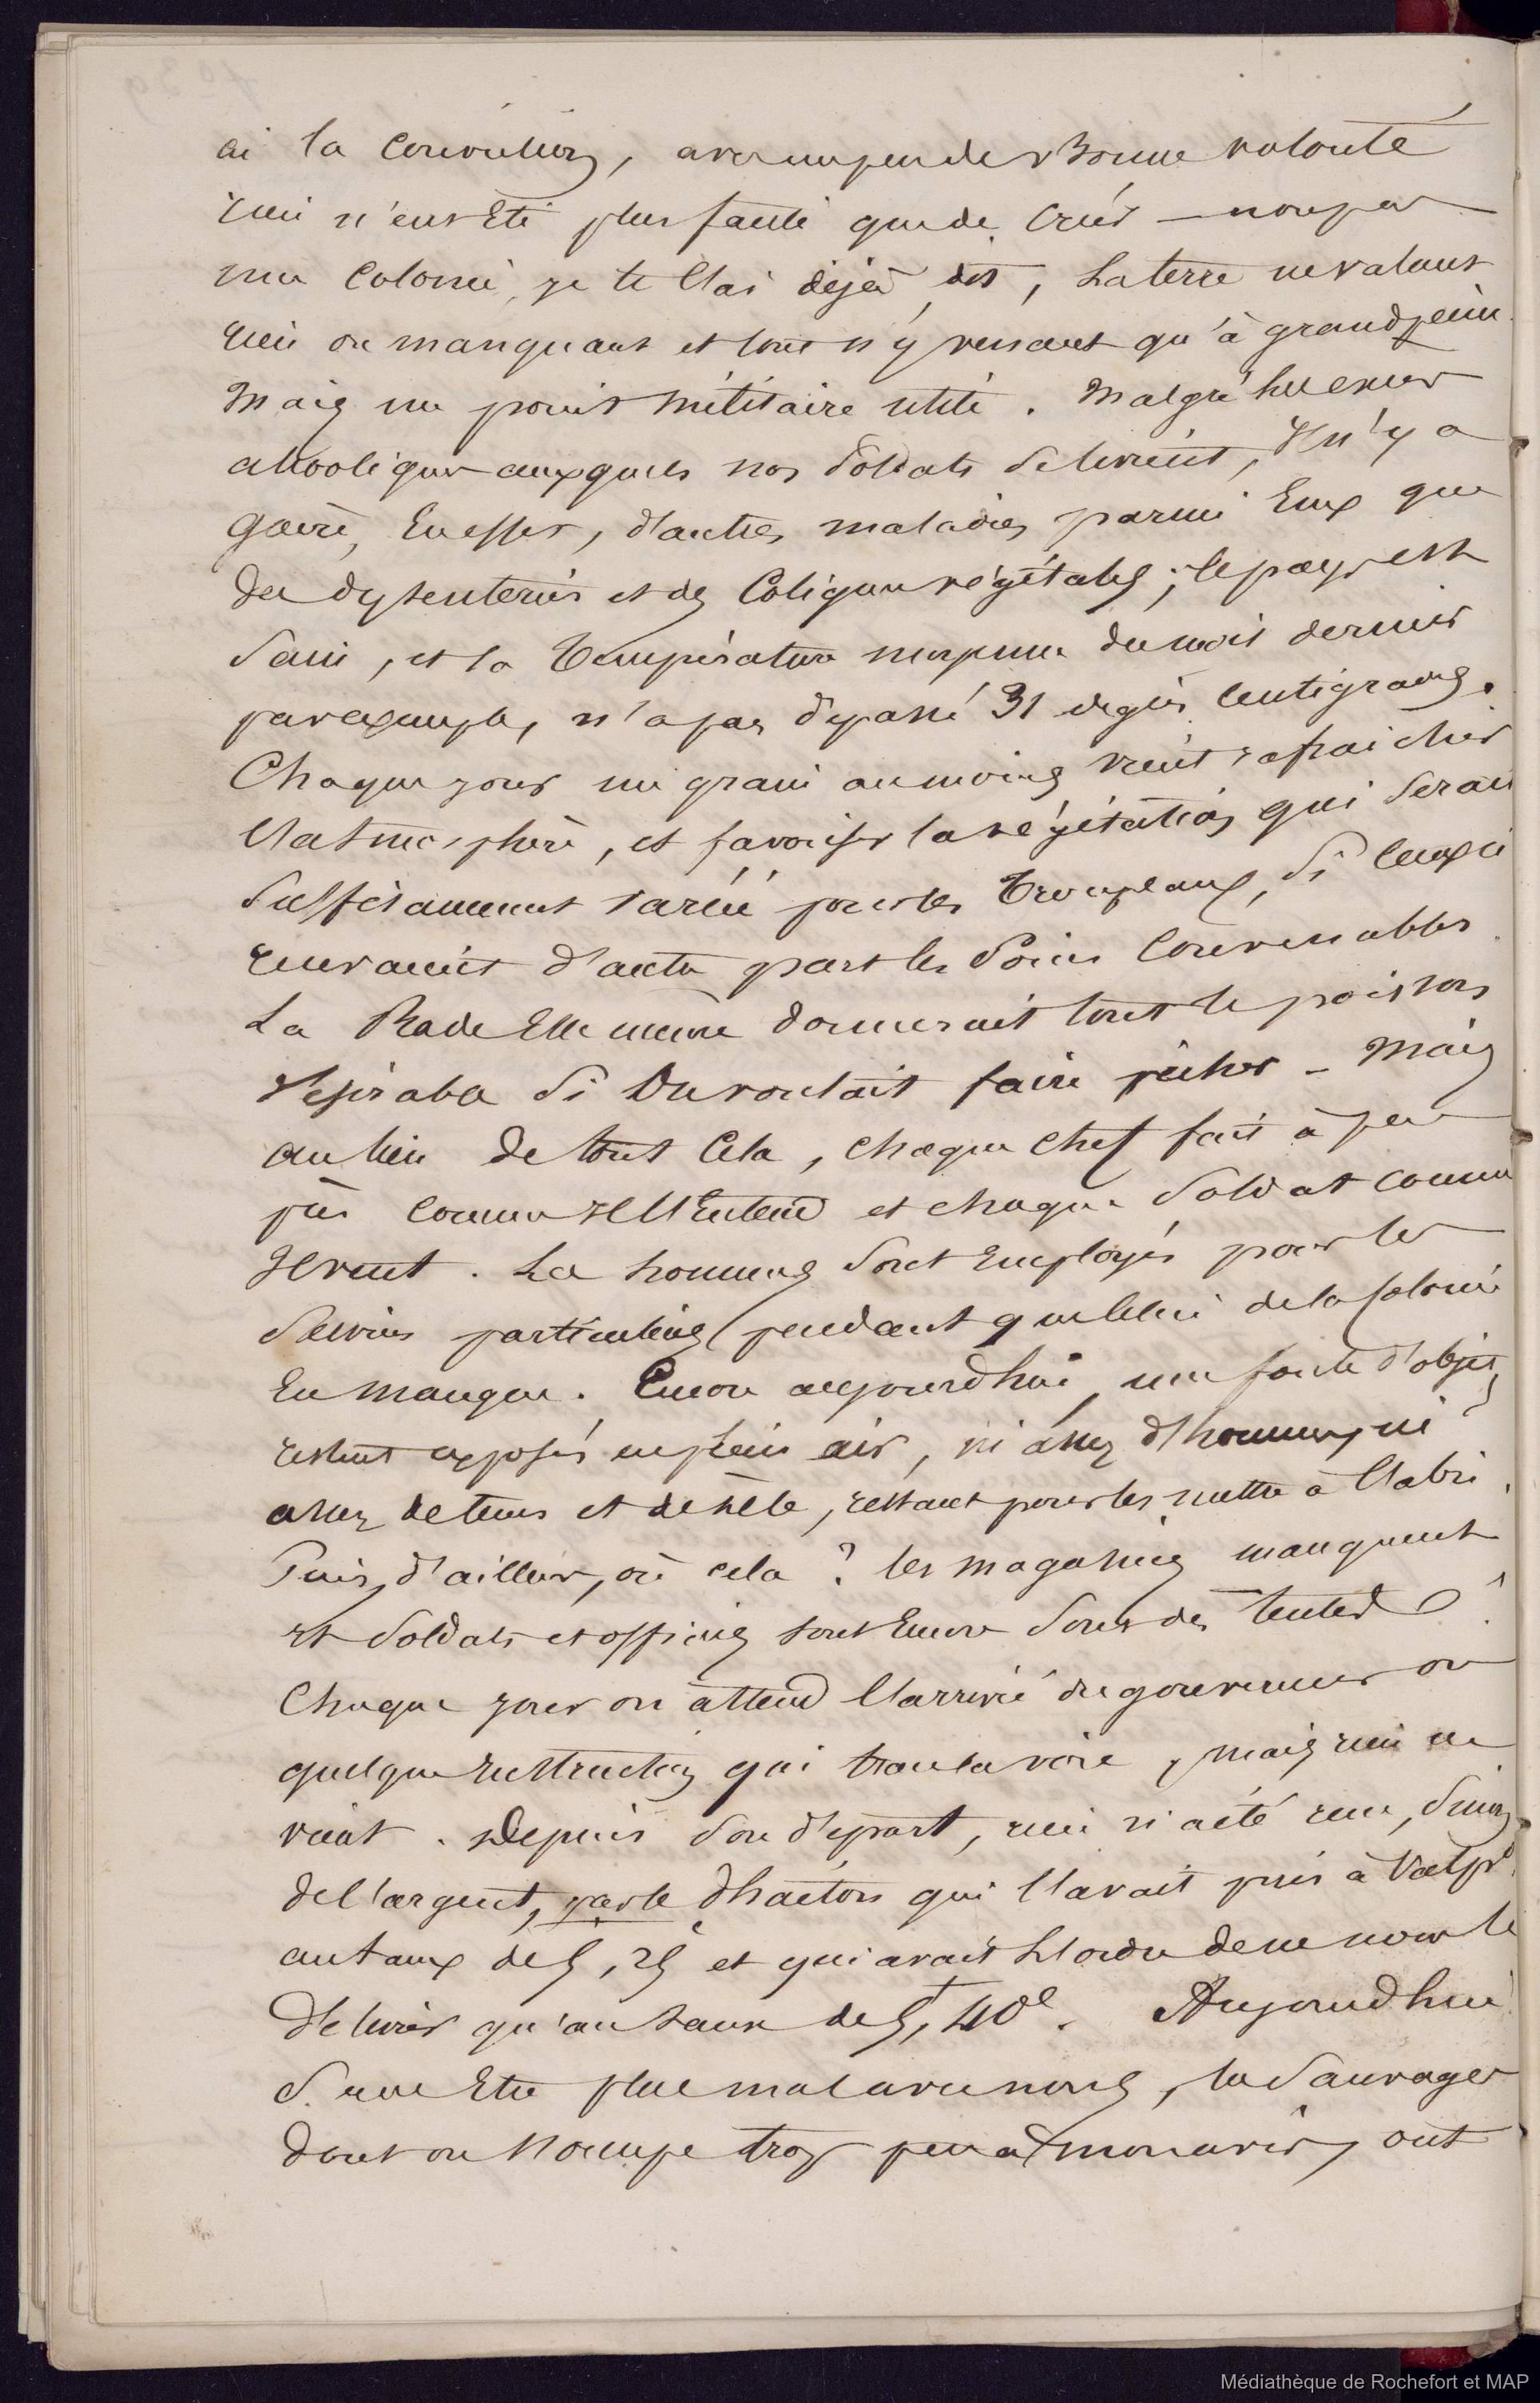 ai la conviction, avec un peu de bonne volonté
rien n'eut été plus facile que de créer — non pas
une colonie, je te l'ai déjà dit, la terre ne valant
rien ou manquant et tout n'y venant qu'à grand peine
Mais un point militaire utile. Malgré les excès
alcooliques auxquels nos soldats se livrent, il n'y a
guère, en effet, d'autres maladies parmi eux que
des dysenteries et des coliques végétales ; le pays est
sain, et la température moyenne du mois dernier
par exemple, n'a pas dépassé 31 degrés centigrades.
Chaque jour un grain au moins vient rafraichir
l'atmosphère, et favoriser la végétation qui serait
suffisamment variée pour les troupeaux, si ceux ci
recevaient d'autre part les soins convenables.
La Rade elle même donnerait tout le poisson
désirable si on voulait faire pêcher — Mais
au lieu de tout cela, chaque chef fait à peu
près comme il l'entend et chaque soldat comme
il veut. Les hommes sont employés pour les
services particuliers pendant que celui de la colonie
en manque. Encore aujourd'hui, une foule d'objets
restent exposés en plein air, ni assez d'hommes, ni
assez de tems et de zèle, restant pour les mettre à l'abri.
Puis, d'ailleurs, où cela ? les magasins manquent
et soldats et officiers sont encore sous des tentes !
Chaque jour on attend l'arrivée du gouverneur ou
quelque instruction qui trace la voie, mais rien ne
vient. Depuis son départ, rien n'a été reçu, sinon
de l'argent, par le Phaéton qui l'avait pris à Valpo.
au taux de 5, 25 et qui avait l'ordre de ne nous le
délivrer qu'au taux de 5f, 40c. Aujourd'hui
sans être plus mal avec nous, les sauvages
dont on s'occupe trop peu à mon avis, ont
Médiathèque de Rochefort et MAP